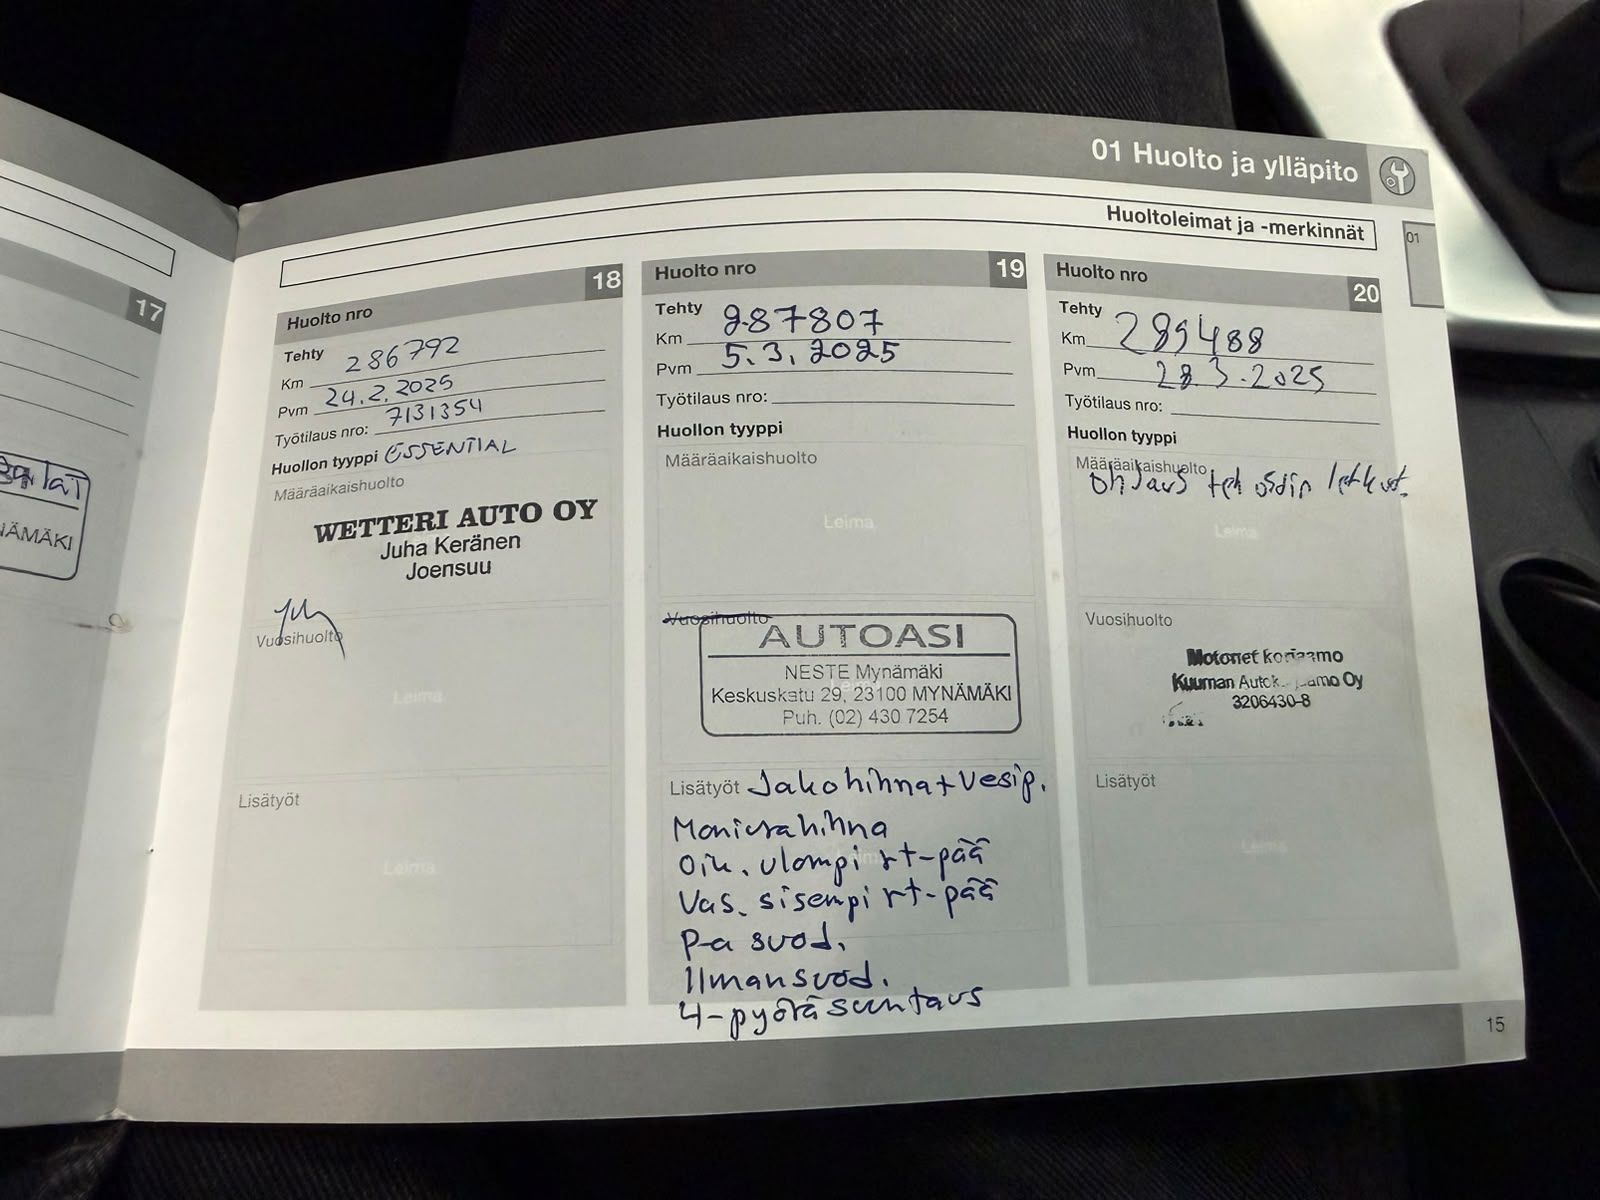 01 Huolto ja ylläpito
Huoltoleimat ja -merkinnät
01
17
NÄMÄKI
Huolto nro 18
Tehty
Km 286792
Pvm 24.2.2025
Työtilaus nro: 7131354
Huollon tyyppi ESSENTIAL
Määräaikaishuolto
WETTERI AUTO OY
Juha Keränen
Joensuu
Vuosihuolto
Leima
Lisätyöt
Leima
Huolto nro 19
Tehty
Km 287807
Pvm 5.3.2025
Työtilaus nro:
Huollon tyyppi
Määräaikaishuolto
Leima
Vuosihuolto
AUTOASI
NESTE Mynämäki
Keskuskatu 29, 23100 MYNÄMÄKI
Puh. (02) 430 7254
Lisätyöt Jakohihna + Vesip.
Moniurahihna
Oik. ulompi rt-pää
Vas. sisempi rt-pää
P-a suod.
Ilmansuod.
4-pyöräsuuntaus
Huolto nro 20
Tehty
Km 289488
Pvm 28.3.2025
Työtilaus nro:
Huollon tyyppi
Määräaikaishuolto
ohjaus tehostin letkut.
Leima
Vuosihuolto
Motonet korjaamo
Kuuman Autokorjaamo Oy
3206430-8
Lisätyöt
Leima
15